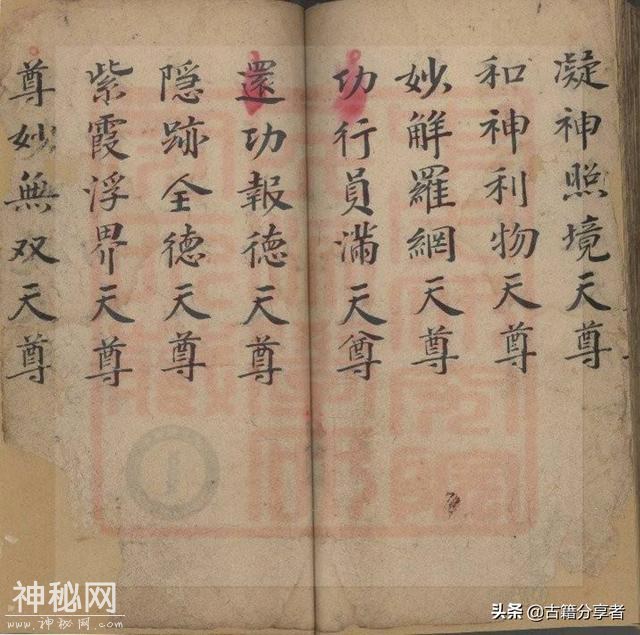 凝神照境天尊
和神利物天尊
妙解羅網天尊
功行員滿天尊
還功報德天尊
隠跡全德天尊
紫霞浮界天尊
尊妙無双天尊
神秘网
www.神秘网.com
头条 @古籍分享者